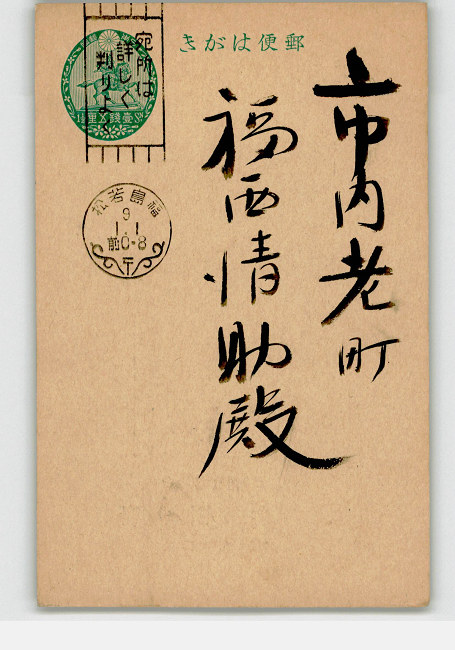 郵便はがき
壹錢五厘
宛所は
詳しく
判りよく
福島若松
9
1.1
前0-8
〒
市内老町
福西情助殿